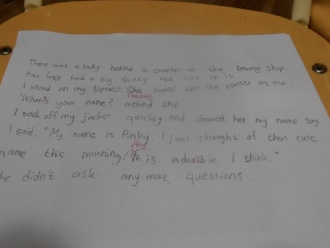 There was a lady behind a counter at the boring shop.
Her face had a big, shinky red lips on it
I stood on my tiptoes. She leaned over the counter at me.
"What's your name?" The lady asked she
I took off my jacket quickly and showed her my name tag
I said. "My name is Pinky. I just thought of this cute
name this morning! And is adorible I think."
She didn't ask any more questions.